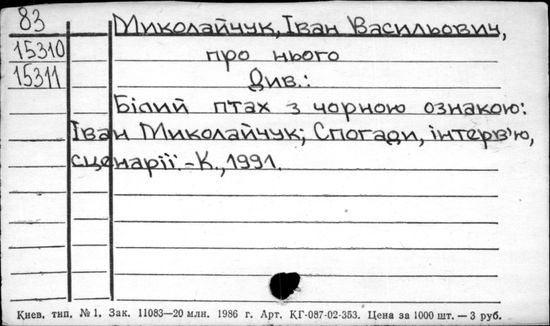 83
Миколайчук, Іван Васильович,
15310
про нього
15311
Див.:
Білий птах з чорною ознакою:
Іван Миколайчук; Спогади, інтерв'ю,
сценарії.-К., 1991.
Киев. тип. № 1. Зак. 11083—20 млн. 1986 г. Арт. КГ-087-02-353. Цена за 1000 шт. — 3 руб.